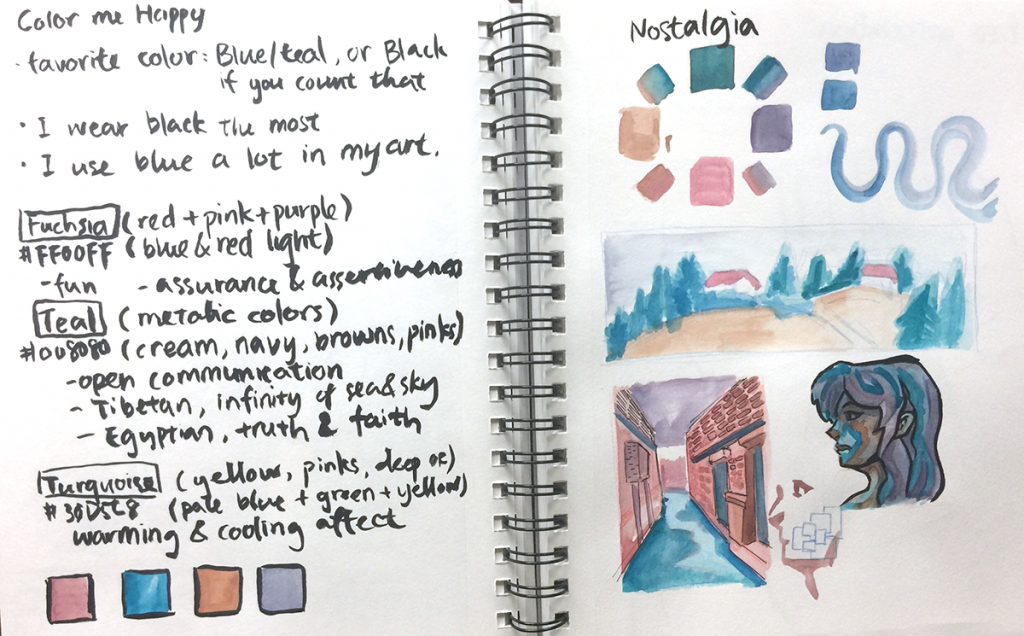 Color me Happy
· favorite color: Blue/teal, or Black
if you count that
· I wear black the most
· I use blue a lot in my art.
Fuchsia (red + pink + purple)
#FF00FF (blue & red light)
- fun - assurance & assertiveness
Teal (metalic colors)
#008080 (cream, navy, browns, pinks)
- open communication
- Tibetan, infinity of sea & sky
- Egyptian, truth & faith
Turquoise (yellow, pinks, deep
(pale blue + green + yellow)
warming & cooling affect
Nostalgia